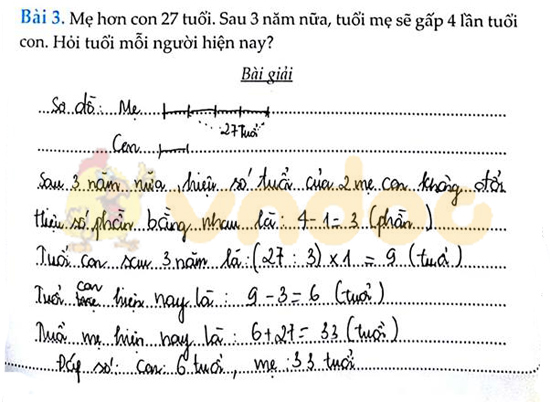 Bài 3. Mẹ hơn con 27 tuổi. Sau 3 năm nữa, tuổi mẹ sẽ gấp 4 lần tuổi
con. Hỏi tuổi mỗi người hiện nay?
Bài giải
Sơ đồ: Mẹ
27 tuổi
Con
Sau 3 năm nữa, hiệu số tuổi của 2 mẹ con không đổi
Hiệu số phần bằng nhau là: 4-1=3 (phần)
Tuổi con sau 3 năm là: (27 : 3) x 1 = 9 (tuổi)
Tuổi con hiện nay là: 9 - 3 = 6 (tuổi)
Tuổi mẹ hiện nay là: 6+27 = 33 (tuổi)
Đáp số: con: 6 tuổi, mẹ: 33 tuổi
vndoc